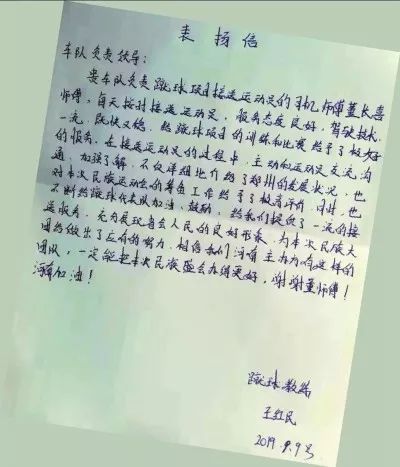 表扬信
车队负责领导：
贵车队负责蹴球项目接送运动员的司机师傅董长喜
师傅，每天按时接送运动员，服务态度良好，驾驶技术
一流，既快又稳，给蹴球项目的训练和比赛给予了极好
的服务。在接送运动员的过程中，主动和运动员交流，沟
通，加强了解，不仅详细地介绍了郑州的发展状况，也
对本次民族运动会的筹备工作给予了极高评价，同时，也
不断给蹴球代表队加油，鼓励，给我们提供了一流的接
送服务，充分展现省会人民的良好形象，为本次民族大
团结做出了应有的努力，相信我们河南主办方有这样的
团队，一定能把本次民族盛会办得更好，谢谢董师傅！
河南加油！
蹴球教练
王红民
2019.9.9号